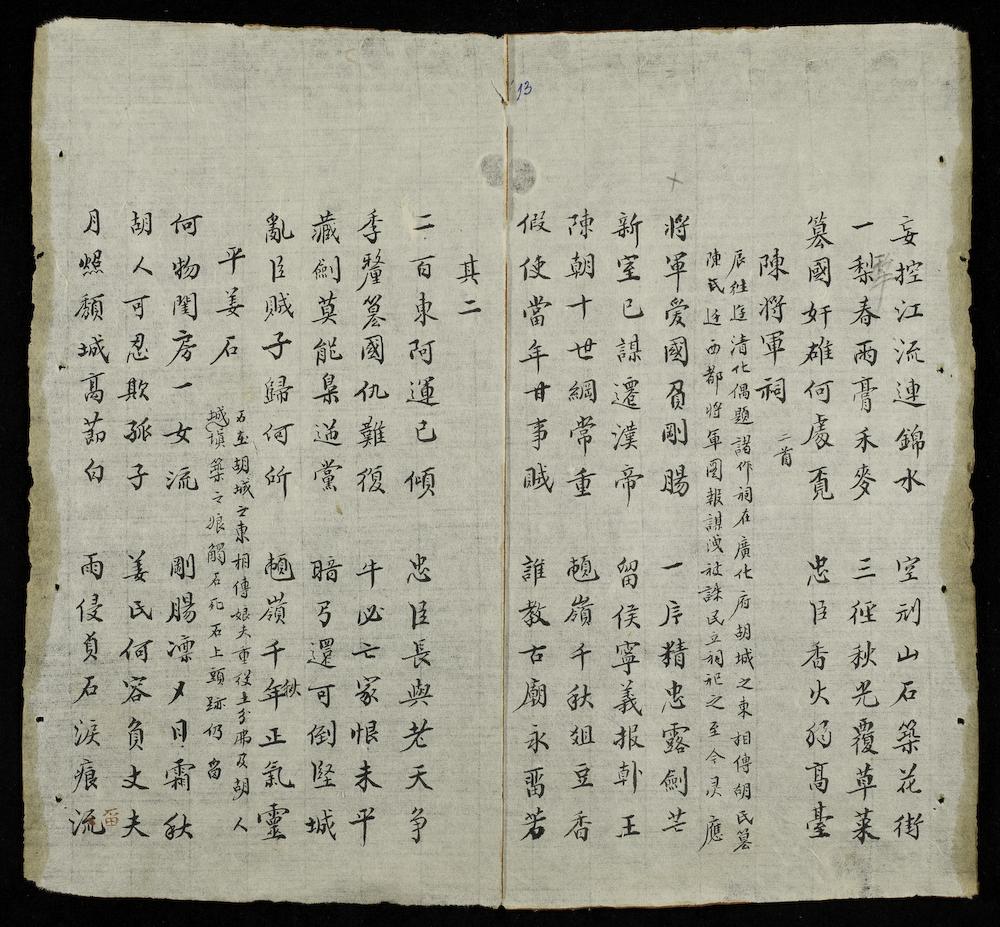 13
妄控江流連錦水 空刓山石築花街
一犁春雨膏禾麥 三徑秋光覆草萊
篡國奸雄何處覔 忠臣香火弼高臺
陳將軍祠 二首
辰往迋清化偶題謁作祠在廣化府胡城之東相傳胡氏篡
陳氏迋西都將軍圖報謀洩被誅民立祠祀之至今灵應
將軍爱國負剛腸 一片精忠露劍芒
新室已謀遷漢帝 留侯寧義报韩王
陳朝十世綱常重 頓嶺千秋俎豆香
假使當年甘事賊 誰教古廟永畱芳
其二
二百東阿運已傾 忠臣長與老天争
季犛篡國仇難復 牛必亡家恨未平
藏劍莫能梟逆黨 暗弓還可倒堅城
亂臣賊子歸何所 頓嶺千年秋正氣靈
平姜石
石在胡城之東相傳娘夫重役土分弗及胡人
城填築之痕觸石死石上頭跡仍畄
何物閨房一女流 剛腸凛〻日霜秋
胡人可忍欺孤子 姜民何容負丈夫
月照頽城高莭白 雨侵貞石淚痕流